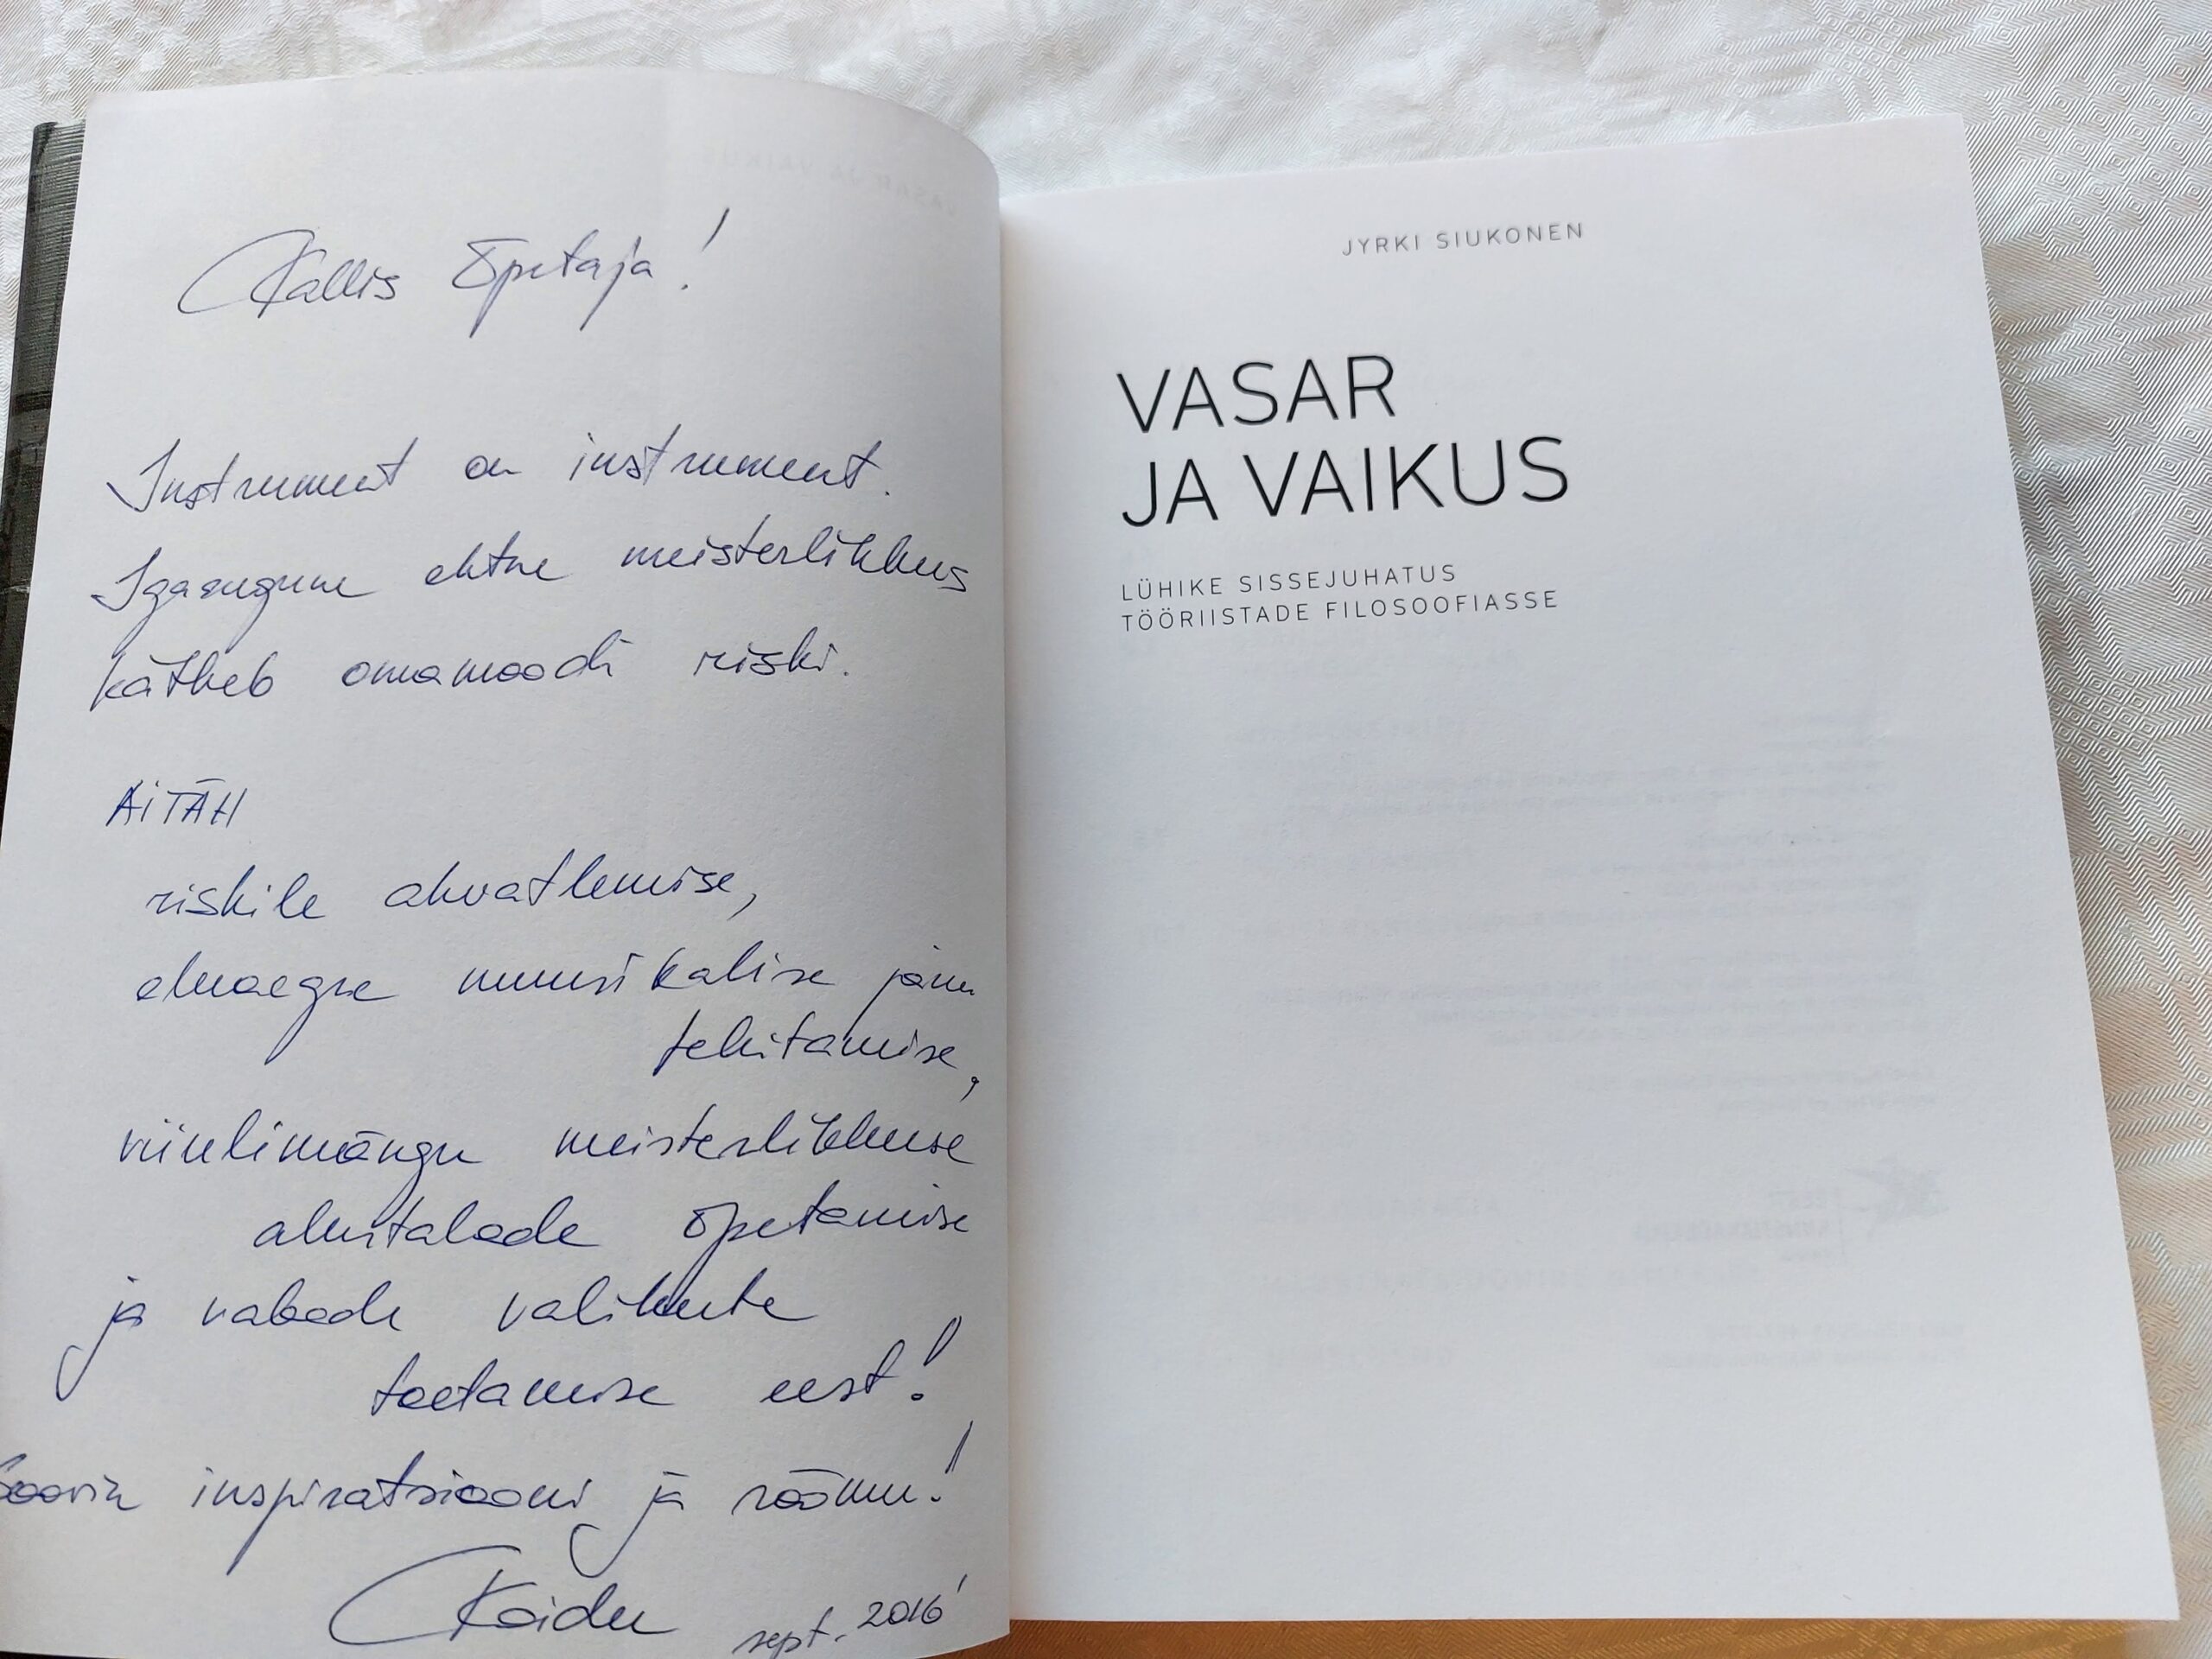 Kallis Õpetaja!
Instrument on instrument.
Igasugune ehtne meisterlikkus
kätkeb omamoodi riski.
AITÄH
riskile ahvatlemise,
eluaegse muusikalise janu
tekitamise,
viiulimängu meisterlikkuse
alustalade õpetamise
ja vabade valikute
toetamise eest!
Soovin inspiratsiooni ja rõõmu!
Kaidu
sept. 2016'
JYRKI SIUKONEN
VASAR
JA VAIKUS
LÜHIKE SISSEJUHATUS
TÖÖRIISTADE FILOSOOFIASSE